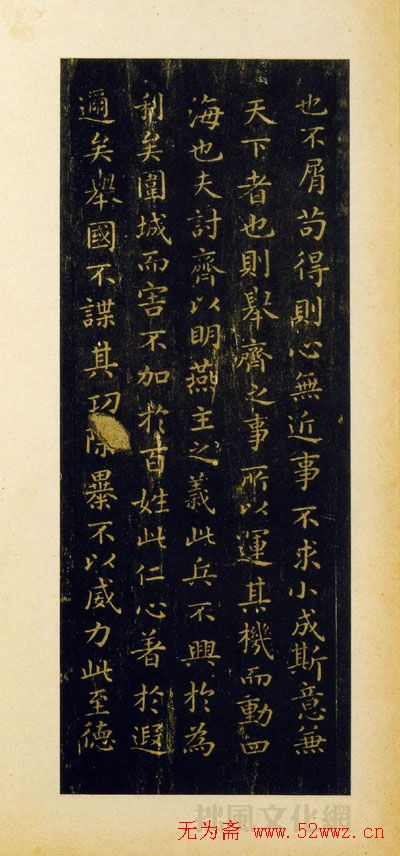 也不屑苟得則心無近事不求小成斯意無
天下者也則舉齊之事所以運其機而動四
海也夫討齊以明燕主之義此兵不興於為
利矣圍城而害不加於百姓此仁心著於遐
邇矣舉國不謀其功除暴不以威力此至德
拙風文化網
无为斋 www.52wwz.cn